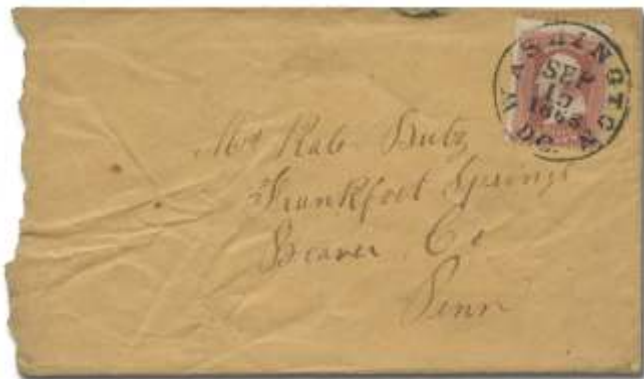 WASHINGTON
SEP
15
D.C.
Mrs Kate Butz
Frankfort Springs
Beaver Co
Penn